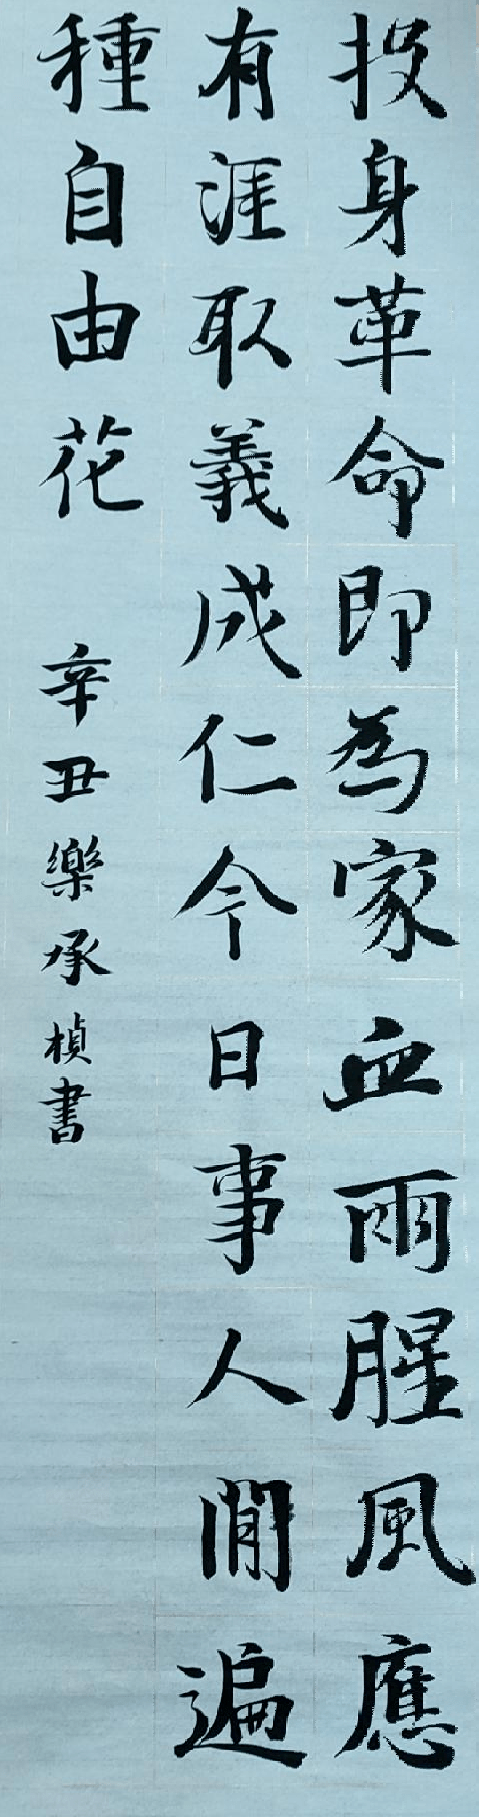 投身革命即為家血雨腥風應
有涯取義成仁今日事人間遍
種自由花
辛丑樂承楨書